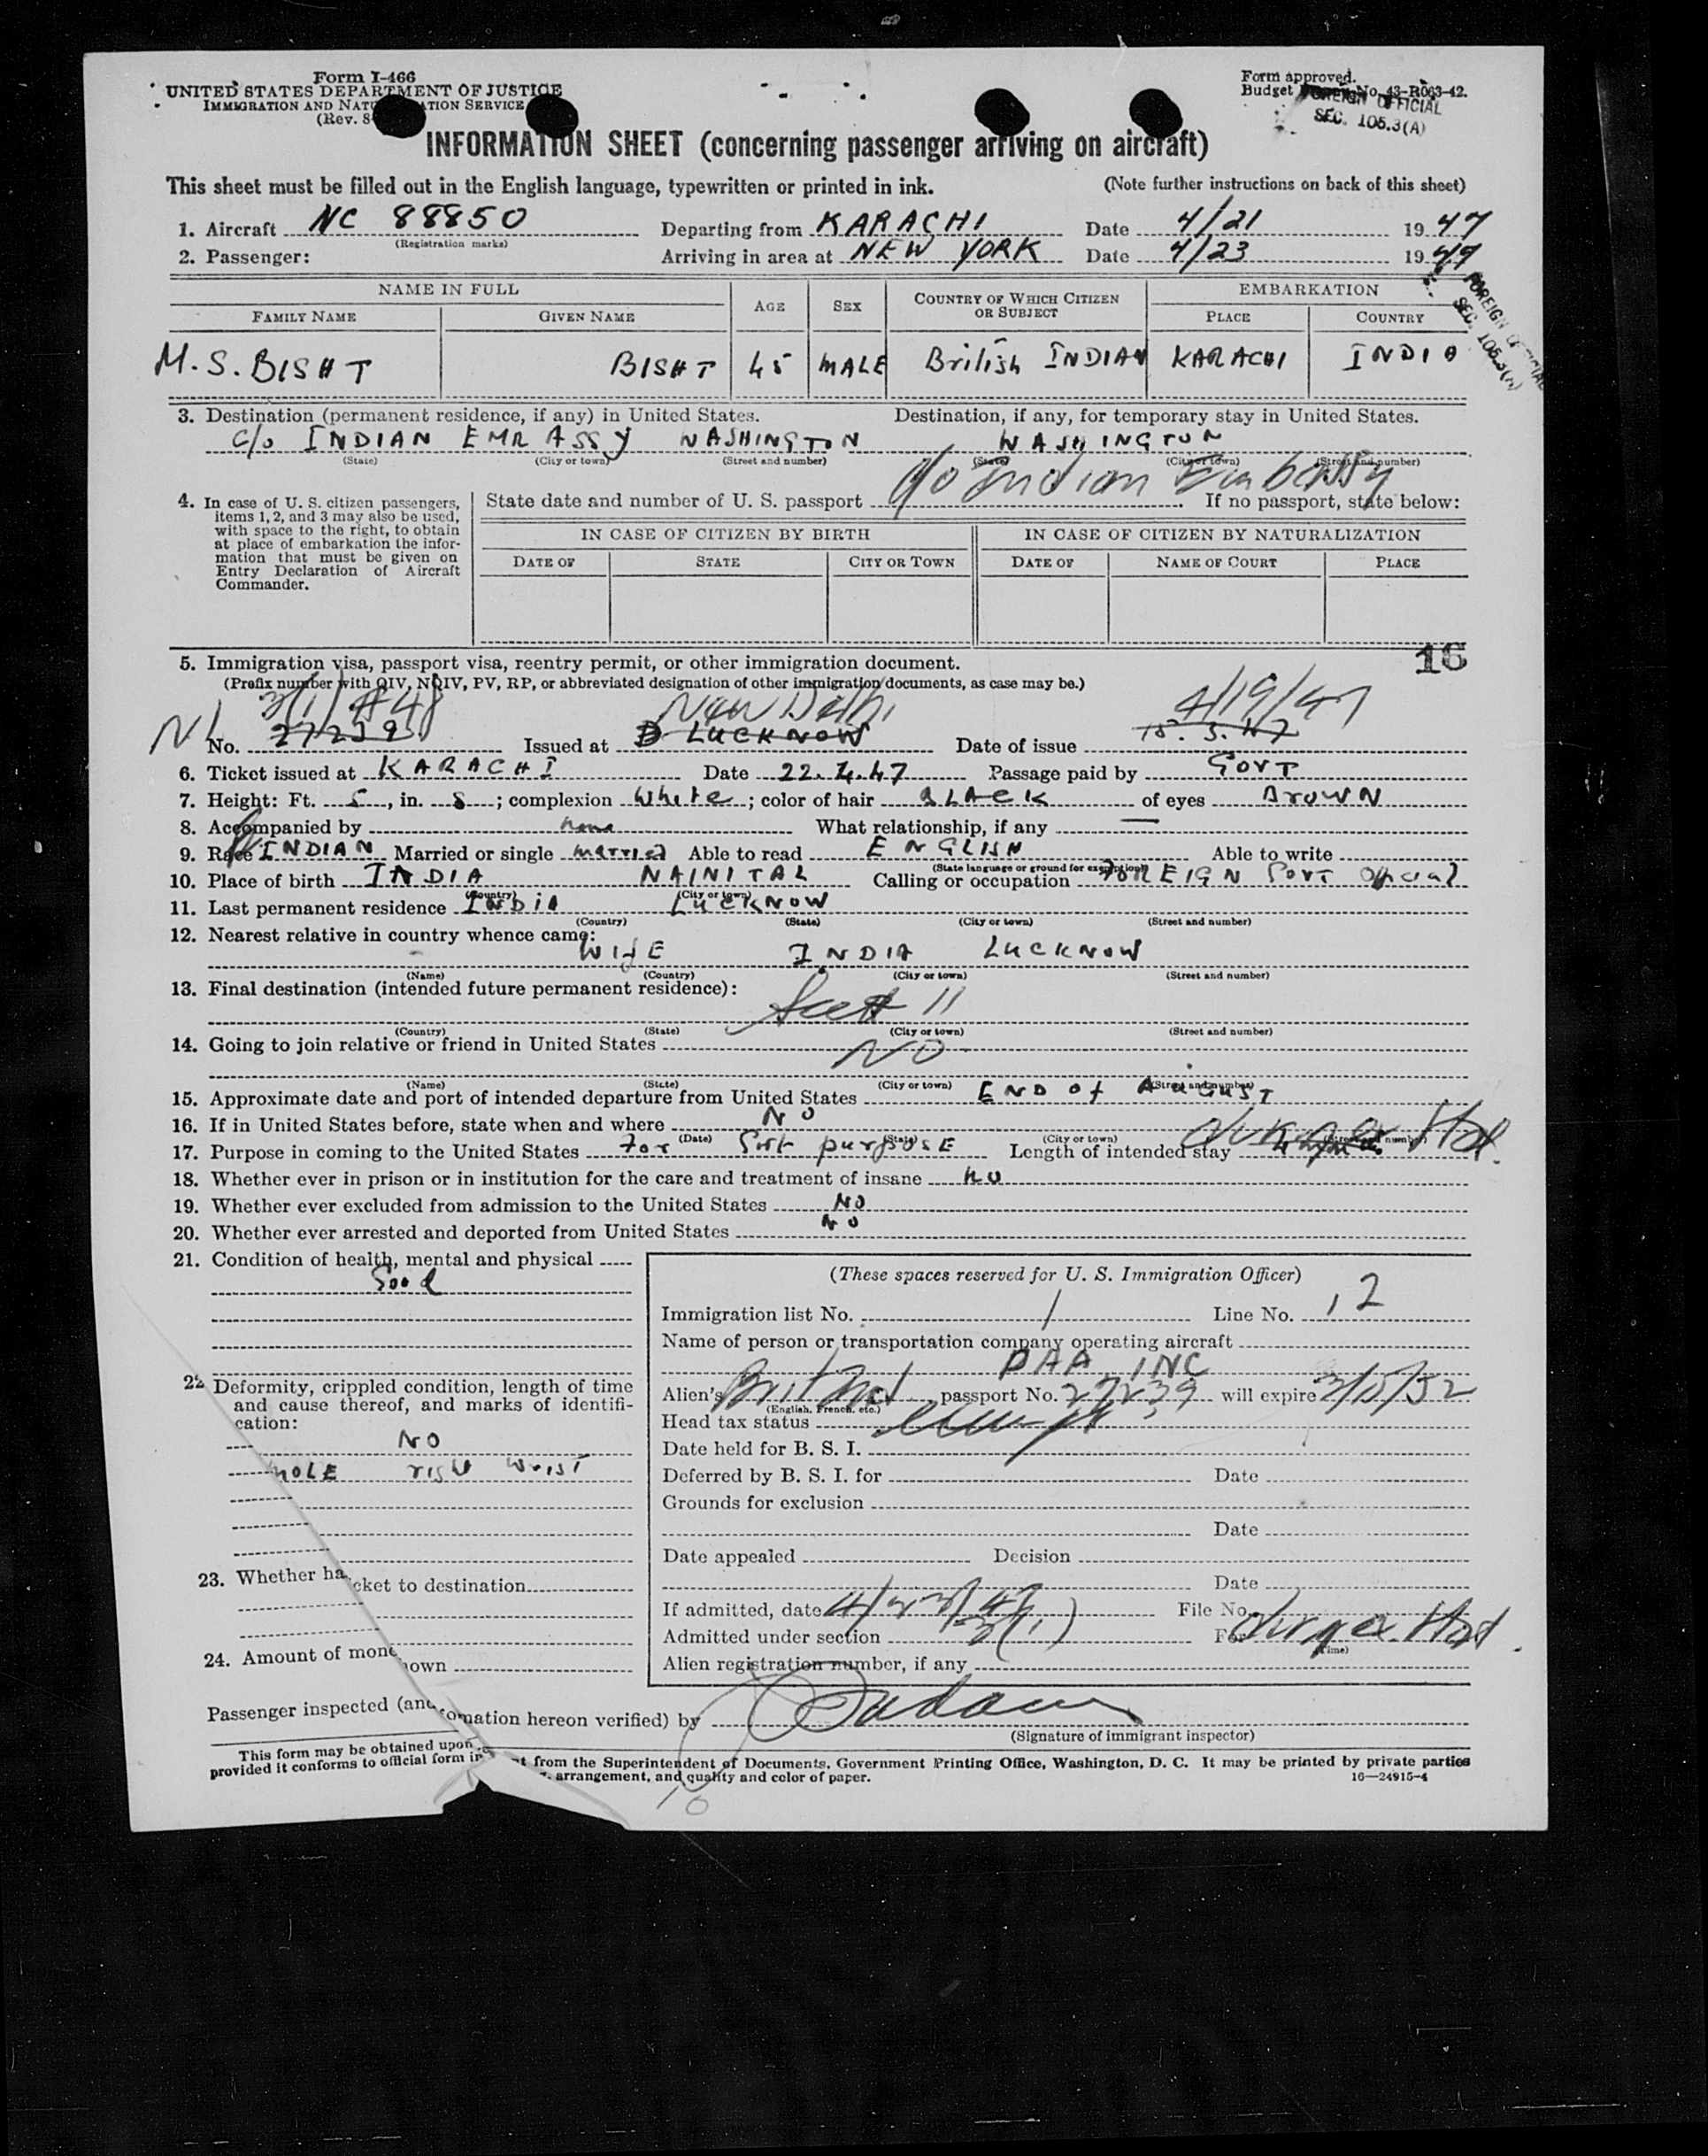 Form I-466
UNITED STATES DEPARTMENT OF JUSTICE
IMMIGRATION AND NATU ATION SERVICE
(Rev. 8-
Form approved.
Budget No. 43-R063-42.
FOREIGN OFFICIAL
SEC. 105.3(A)
INFORMATION SHEET (concerning passenger arriving on aircraft)
This sheet must be filled out in the English language, typewritten or printed in ink. (Note further instructions on back of this sheet)
1. Aircraft NC 88850 Departing from KARACHI Date 4/21 1947
(Registration marks)
2. Passenger: Arriving in area at NEW YORK Date 4/23 1947
FOREIGN OFFICIAL
SEC. 105.3(A)
NAME IN FULL AGE SEX COUNTRY OF WHICH CITIZEN OR SUBJECT EMBARKATION
FAMILY NAME GIVEN NAME PLACE COUNTRY
M.S. BISHT BISHT 45 MALE British INDIAN KARACHI INDIA
3. Destination (permanent residence, if any) in United States. Destination, if any, for temporary stay in United States.
C/o INDIAN EMBASSY WASHINGTON WASHINGTON
(State) (City or town) (Street and number) (State) (City or town) (Street and number)
c/o Indian Embassy
4. In case of U. S. citizen passengers, items 1, 2, and 3 may also be used, with space to the right, to obtain at place of embarkation the information that must be given on Entry Declaration of Aircraft Commander.
State date and number of U. S. passport If no passport, state below:
IN CASE OF CITIZEN BY BIRTH IN CASE OF CITIZEN BY NATURALIZATION
DATE OF STATE CITY OR TOWN DATE OF NAME OF COURT PLACE
16
5. Immigration visa, passport visa, reentry permit, or other immigration document.
(Prefix number with QIV, NQIV, PV, RP, or abbreviated designation of other immigration documents, as case may be.)
3(1) #48 New Delhi 4/19/47
No. 27239 Issued at LUCKNOW Date of issue 15.3.47
6. Ticket issued at KARACHI Date 22.4.47 Passage paid by GOVT
7. Height: Ft. 5, in. 8; complexion White; color of hair BLACK of eyes BROWN
8. Accompanied by None What relationship, if any —
9. Race INDIAN Married or single married Able to read ENGLISH Able to write
(State language or ground for exemption)
10. Place of birth INDIA NAINITAL Calling or occupation FOREIGN GOVT Official
(Country) (City or town)
11. Last permanent residence INDIA LUCKNOW
(Country) (State) (City or town) (Street and number)
12. Nearest relative in country whence came:
WIFE INDIA LUCKNOW
(Name) (Country) (City or town) (Street and number)
13. Final destination (intended future permanent residence):
See # 11
(Country) (State) (City or town) (Street and number)
14. Going to join relative or friend in United States
NO
(Name) (State) (City or town) (Street and number)
15. Approximate date and port of intended departure from United States END of AUGUST
16. If in United States before, state when and where NO
(Date) (State) (City or town) (Street and number)
17. Purpose in coming to the United States For Govt purpose Length of intended stay
18. Whether ever in prison or in institution for the care and treatment of insane NO
19. Whether ever excluded from admission to the United States NO
20. Whether ever arrested and deported from United States NO
21. Condition of health, mental and physical
Good
22 Deformity, crippled condition, length of time and cause thereof, and marks of identification:
NO
MOLE right wrist
23. Whether ha cket to destination
24. Amount of mone hown
(These spaces reserved for U. S. Immigration Officer)
Immigration list No. 1 Line No. 12
Name of person or transportation company operating aircraft
PAA INC
Alien's Brit Ind passport No. 27239 will expire 3/15/52
(English, French, etc.)
Head tax status exempt
Date held for B. S. I.
Deferred by B. S. I. for Date
Grounds for exclusion
Date
Date appealed Decision
Date
If admitted, date 4/23/47 File No.
Admitted under section 3(1) For
(Time)
Alien registration number, if any
Passenger inspected (and ormation hereon verified) by
(Signature of immigrant inspector)
This form may be obtained upon t from the Superintendent of Documents, Government Printing Office, Washington, D. C. It may be printed by private parties
provided it conforms to official form in arrangement, and quality and color of paper.
16—24915-4